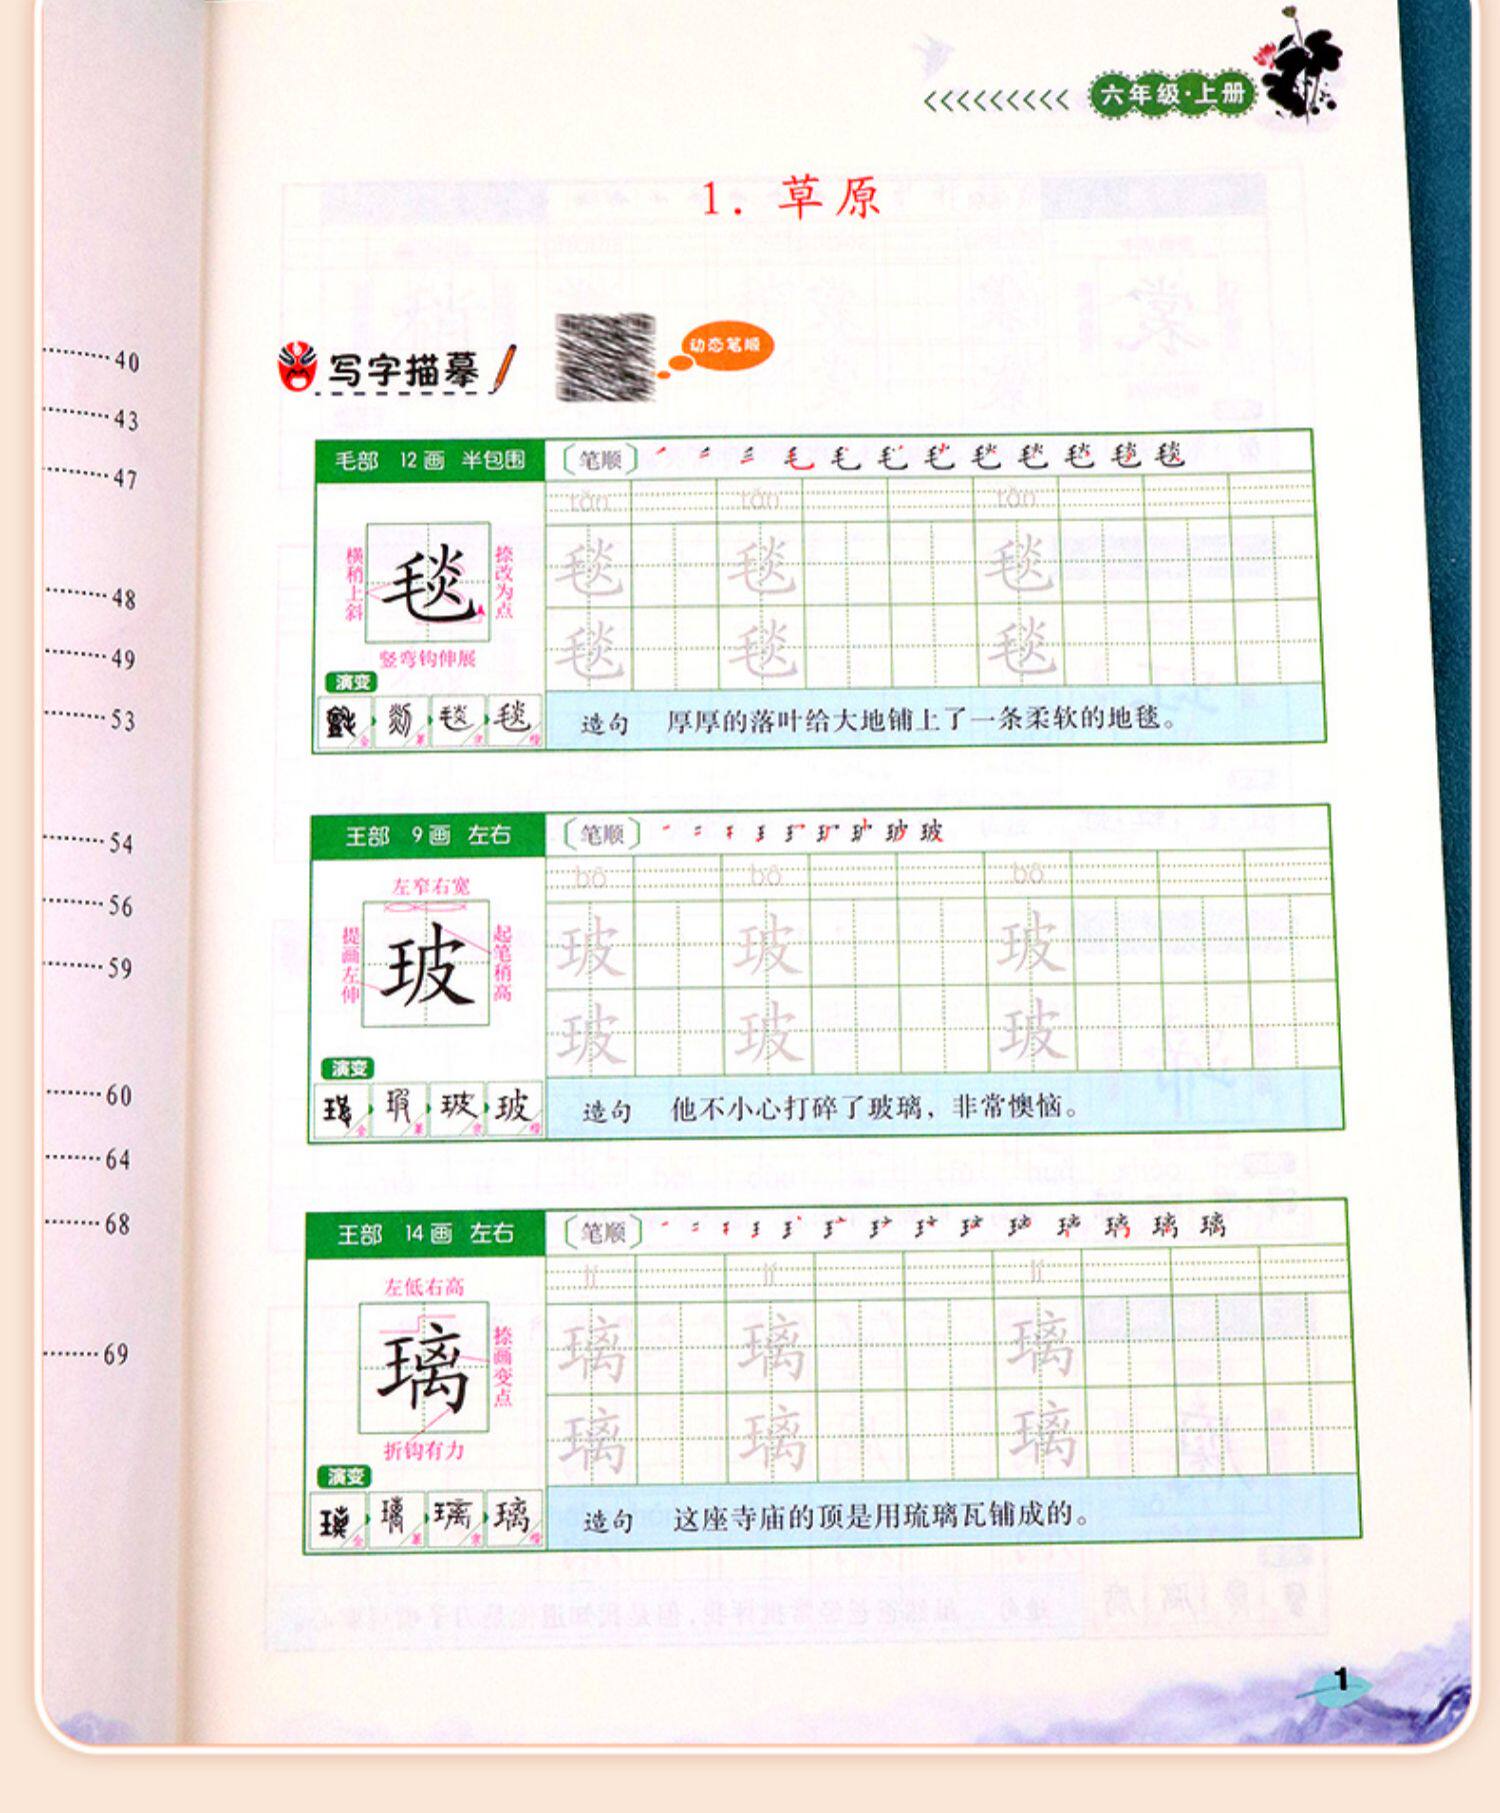 六年级·上册
1. 草原
写字描摹
动态笔顺
40
43
47
48
49
53
54
56
59
60
64
68
69
毛部 12画 半包围
〔笔顺〕
tǎn tǎn tǎn
横稍上斜
毯
捺改为点
竖弯钩伸展
毯 毯 毯
毯 毯 毯
演变
毯 毯
金 篆 隶 楷
造句 厚厚的落叶给大地铺上了一条柔软的地毯。
王部 9画 左右
〔笔顺〕
玻
bō bō bō
左窄右宽
提画左伸
玻
起笔稍高
玻 玻 玻
玻 玻 玻
演变
玻 玻
金 篆 隶 楷
造句 他不小心打碎了玻璃，非常懊恼。
王部 14画 左右
〔笔顺〕
璃
lí lí lí
左低右高
璃
捺画变点
折钩有力
璃 璃 璃
璃 璃 璃
演变
璃 璃
金 篆 隶 楷
造句 这座寺庙的顶是用琉璃瓦铺成的。
1